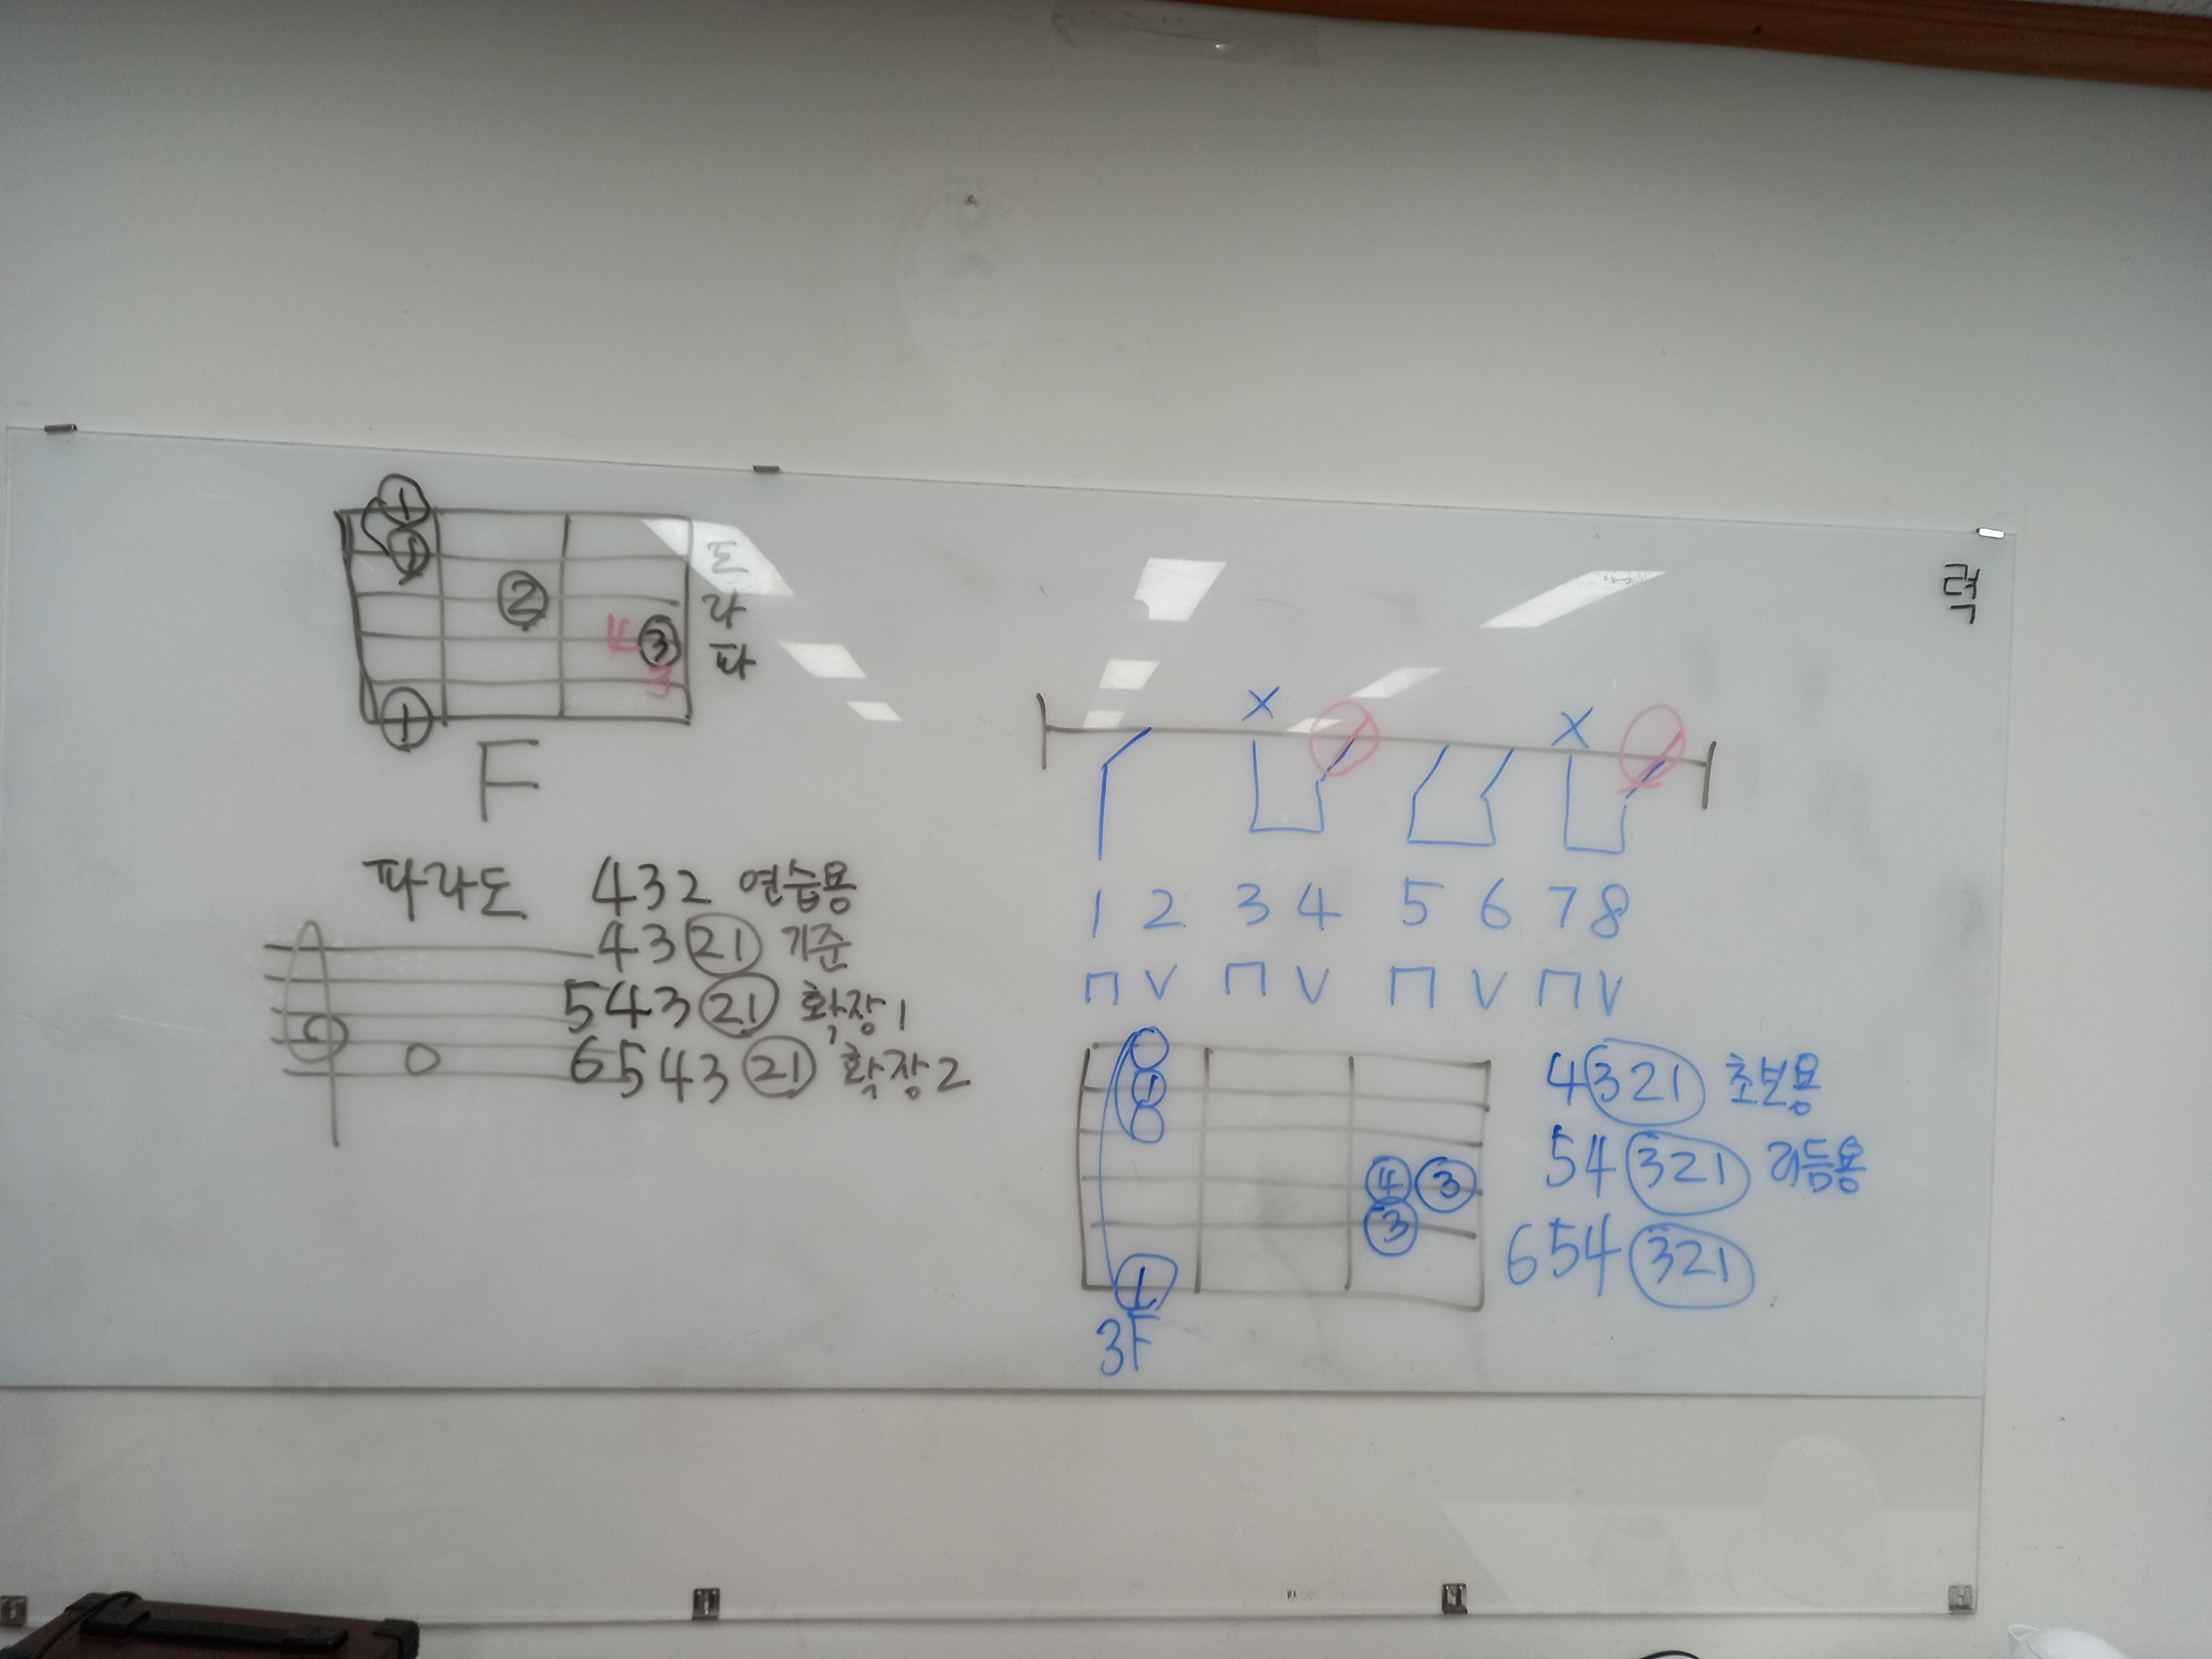 1
1
2
4 3
3
1
도
라
파
F
파라도 432 연습용
43 21 기준
543 21 확장1
6543 21 확장2
력
X X
1 2 3 4 5 6 7 8
V V V V
1
4 3
3
1
3F
4 321 초보용
54 321 리듬용
654 321